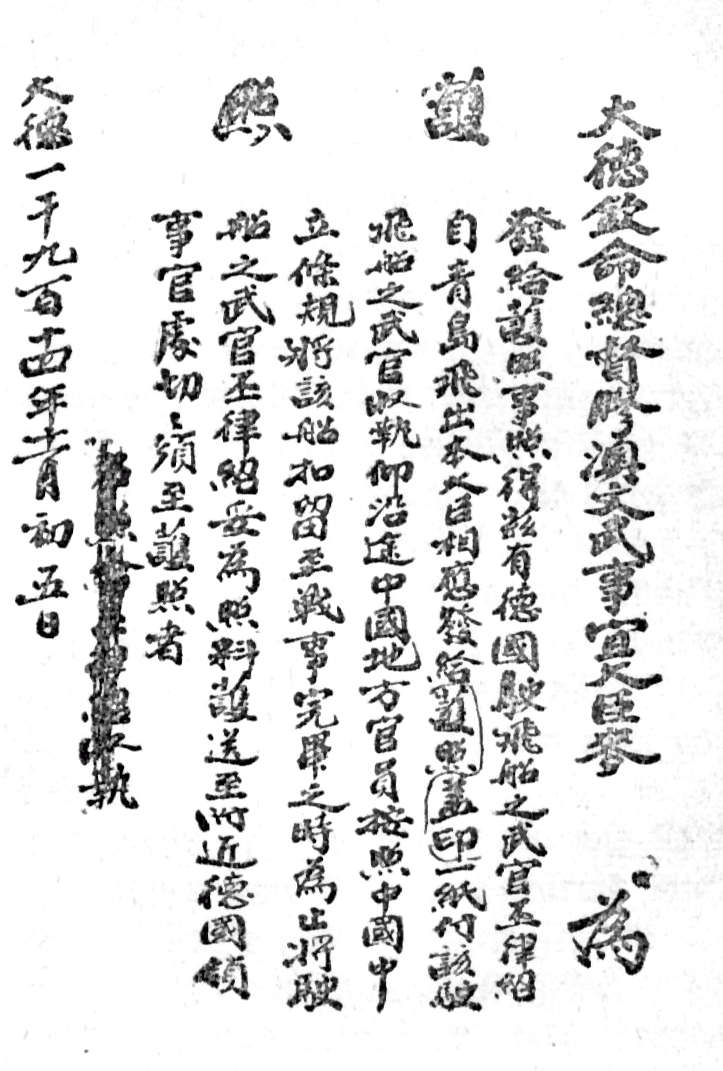 大德欽命總督膠澳文武事宜大臣麥 為
護照
發給護照事照得茲有德國駛飛船之武官丕律紹
自青島飛出本大臣相應發給護照蓋印一紙付該駛
飛船之武官收執仰沿途中國地方官員按照中國中
立條規將該船扣留至戰事完畢之時為止將駛
船之武官丕律紹妥為照料護送至附近德國領
事官處切切須至護照者
收執
大德一千九百十四年十一月初五日